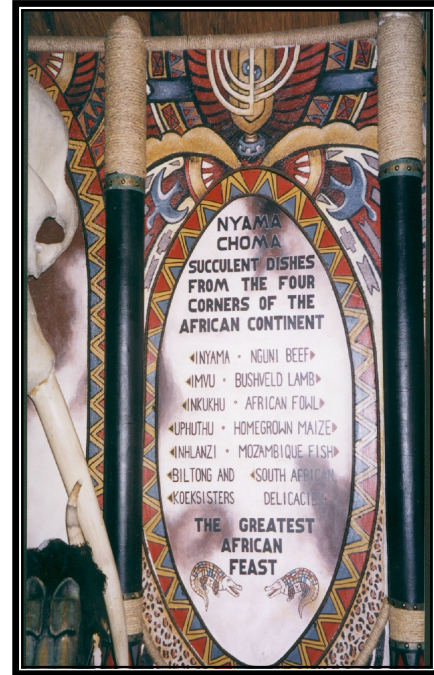 NYAMA
CHOMA
SUCCULENT DISHES
FROM THE FOUR
CORNERS OF THE
AFRICAN CONTINENT
INYAMA • NGUNI BEEF
IMVU • BUSHVELD LAMB
INKUKHU • AFRICAN FOWL
UPHUTHU • HOMEGROWN MAIZE
INHLANZI • MOZAMBIQUE FISH
BILTONG AND SOUTH AFRICAN
KOEKSISTERS DELICACIES
THE GREATEST
AFRICAN
FEAST